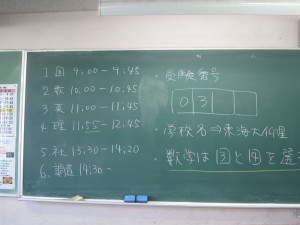 1 国 9:00 - 9:45
2 数 10:00 - 10:45
3 英 11:00 - 11:45
4. 理 11:55 - 12:45
5. 社 13:30 - 14:20
6. 調査 14:30 -
・受験番号
0 3
・学校名⇒東海大仰星
・数学は 3 と 4 を選